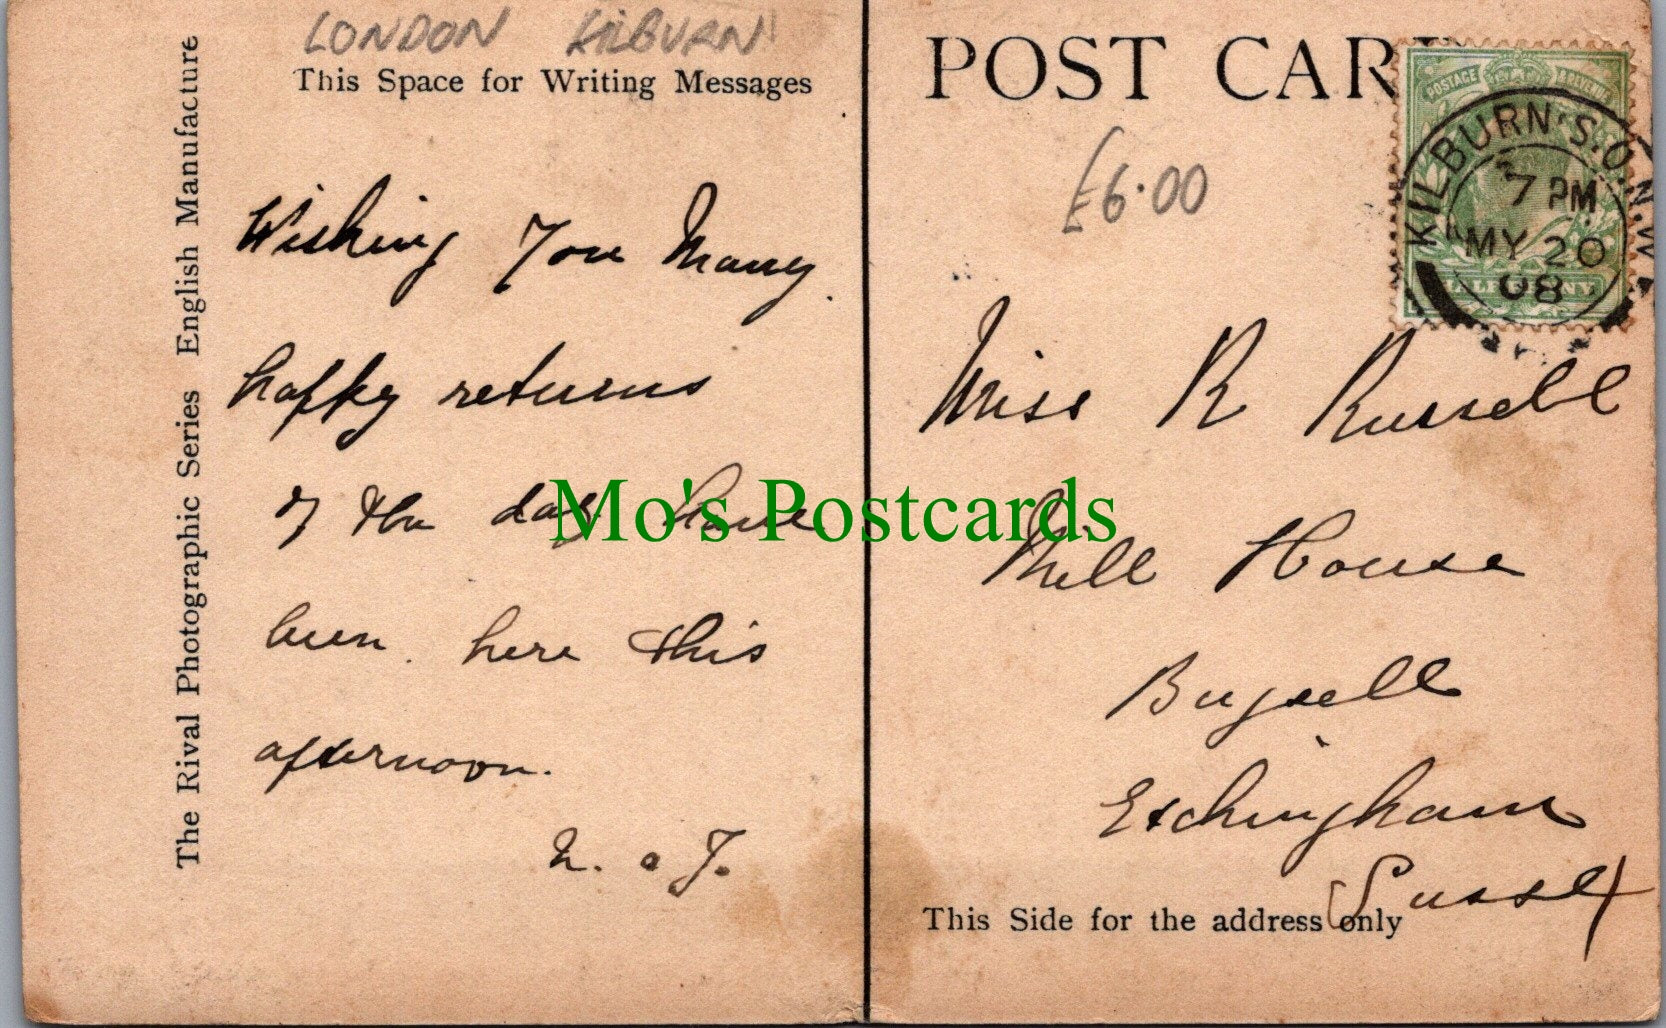 LONDON KILBURN
This Space for Writing Messages
The Rival Photographic Series English Manufacture
Wishing You Many
happy returns
of the day have
been here this
afternoon.
POST CARD
£6.00
POSTAGE & REVENUE
KILBURN S.O. N.W.
7 PM
MY 20
08
HALFPENNY
Miss R Russell
Mill House
Bugsell
Etchingham
Sussex
This Side for the address only
Mo's Postcards